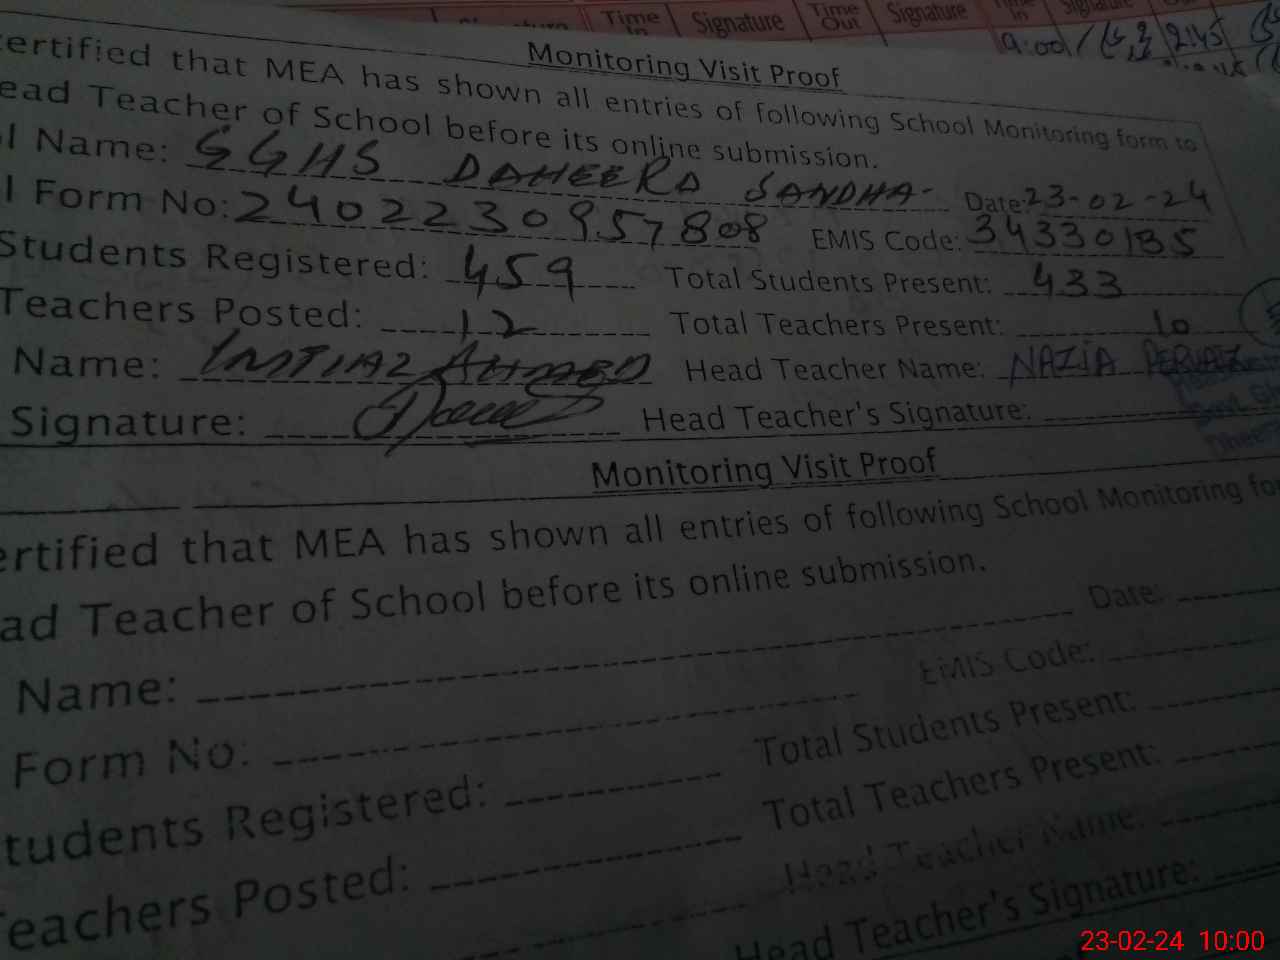 Time In Signature Time Out Signature Time In Signature
9:00 2:45
Monitoring Visit Proof
ertified that MEA has shown all entries of following School Monitoring form to
ead Teacher of School before its online submission.
l Name: GGHS DAHEERA SANDHA Date: 23-02-24
l Form No: 2402230957808 EMIS Code: 34330185
Students Registered: 459 Total Students Present: 433
Teachers Posted: 12 Total Teachers Present: 10
Name: IMTIAZ AHMED Head Teacher Name: NAZIA PERVAIZ
Signature: Head Teacher's Signature:
Monitoring Visit Proof
ertified that MEA has shown all entries of following School Monitoring fo
ad Teacher of School before its online submission.
Name: Date:
Form No: EMIS Code:
tudents Registered: Total Students Present:
eachers Posted: Total Teachers Present:
Head Teacher Name:
Head Teacher's Signature:
23-02-24 10:00